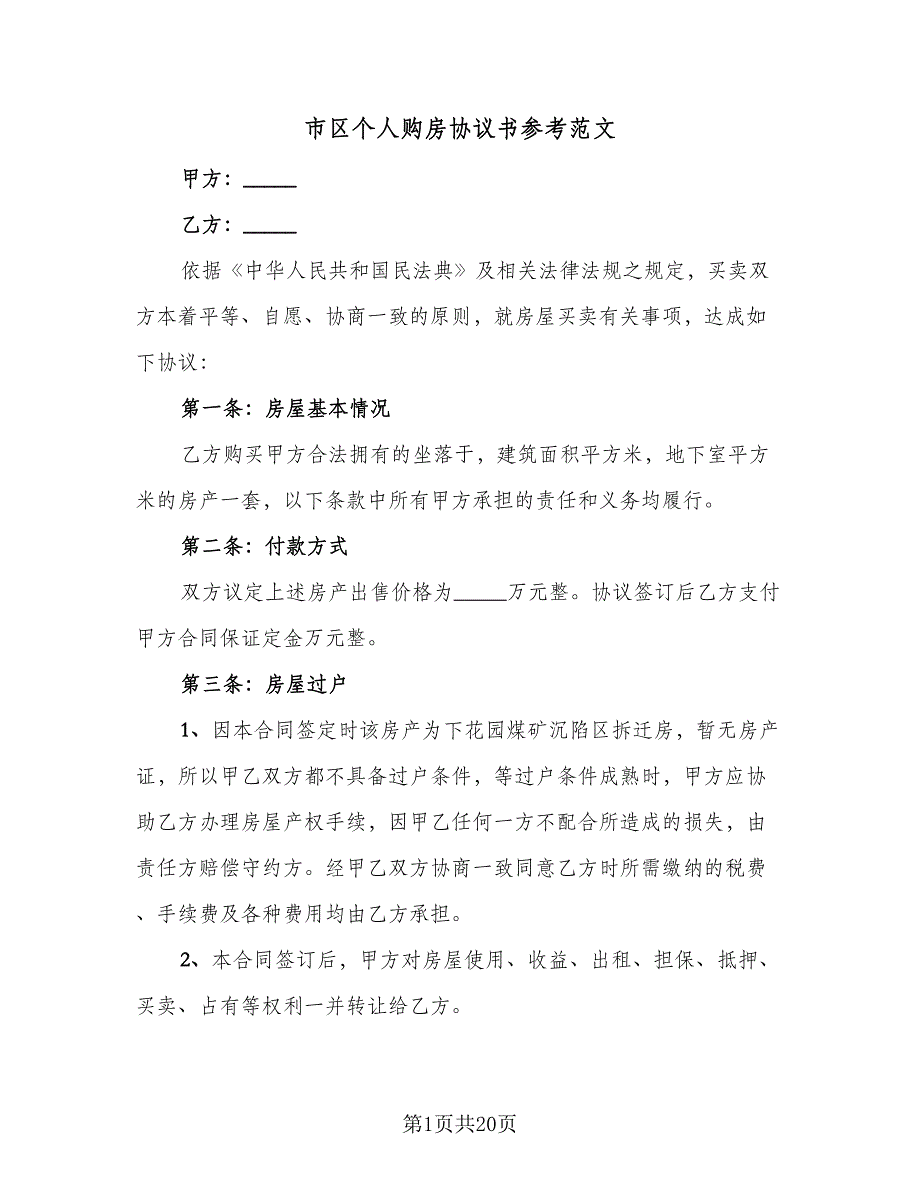 市区个人购房协议书参考范文
甲方：_____
乙方：_____
依据《中华人民共和国民法典》及相关法律法规之规定，买卖双
方本着平等、自愿、协商一致的原则，就房屋买卖有关事项，达成如
下协议：
第一条：房屋基本情况
乙方购买甲方合法拥有的坐落于，建筑面积平方米，地下室平方
米的房产一套，以下条款中所有甲方承担的责任和义务均履行。
第二条：付款方式
双方议定上述房产出售价格为_____万元整。协议签订后乙方支付
甲方合同保证定金万元整。
第三条：房屋过户
1、因本合同签定时该房产为下花园煤矿沉陷区拆迁房，暂无房产
证，所以甲乙双方都不具备过户条件，等过户条件成熟时，甲方应协
助乙方办理房屋产权手续，因甲乙任何一方不配合所造成的损失，由
责任方赔偿守约方。经甲乙双方协商一致同意乙方时所需缴纳的税费
、手续费及各种费用均由乙方承担。
2、本合同签订后，甲方对房屋使用、收益、出租、担保、抵押、
买卖、占有等权利一并转让给乙方。
第1页共20页